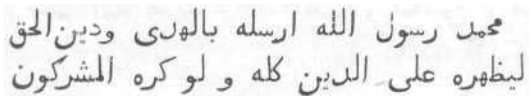 محمد رسول الله ارسله بالهدى ودين الحق
ليظهره على الدين كله و لو كره المشركون